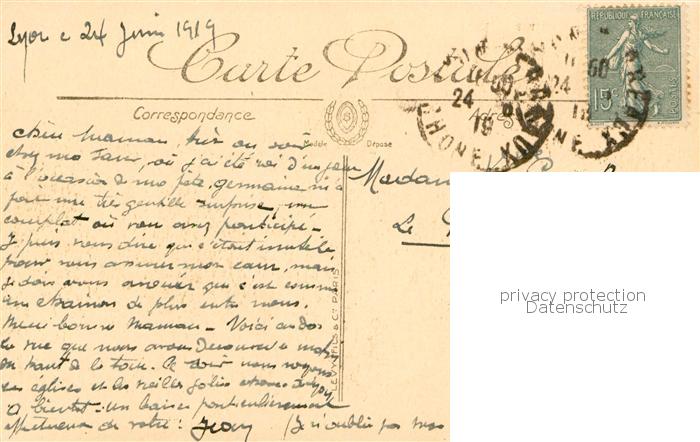 Lyon le 24 Juin 1919
Carte Postale
RÉPUBLIQUE FRANÇAISE
15c
Correspondance
Modèle Déposé
Adresse
RHONE
24
19
Chère Maman, hier au soir
chez ma sœur, où j'ai été roi d'un jour
à l'occasion de ma fête, germaine m'a
fait une très gentille surprise, un
complot où vous avez participé -
Je puis vous dire que c'était inutile
pour vous assurer mon cœur, mais
je dois vous avouer que c'est comme
un chaînon de plus entre nous.
Merci bonne Maman - Voici au dos
la vue que nous avons
en haut de le toit. Ce soir nous
les églises et les vieilles
A bientôt - un baiser particulièrement
affectueux de votre : Jean (Je n'oublie pas
Madame
Le
LEVY FILS & Cie PARIS
privacy protection
Datenschutz